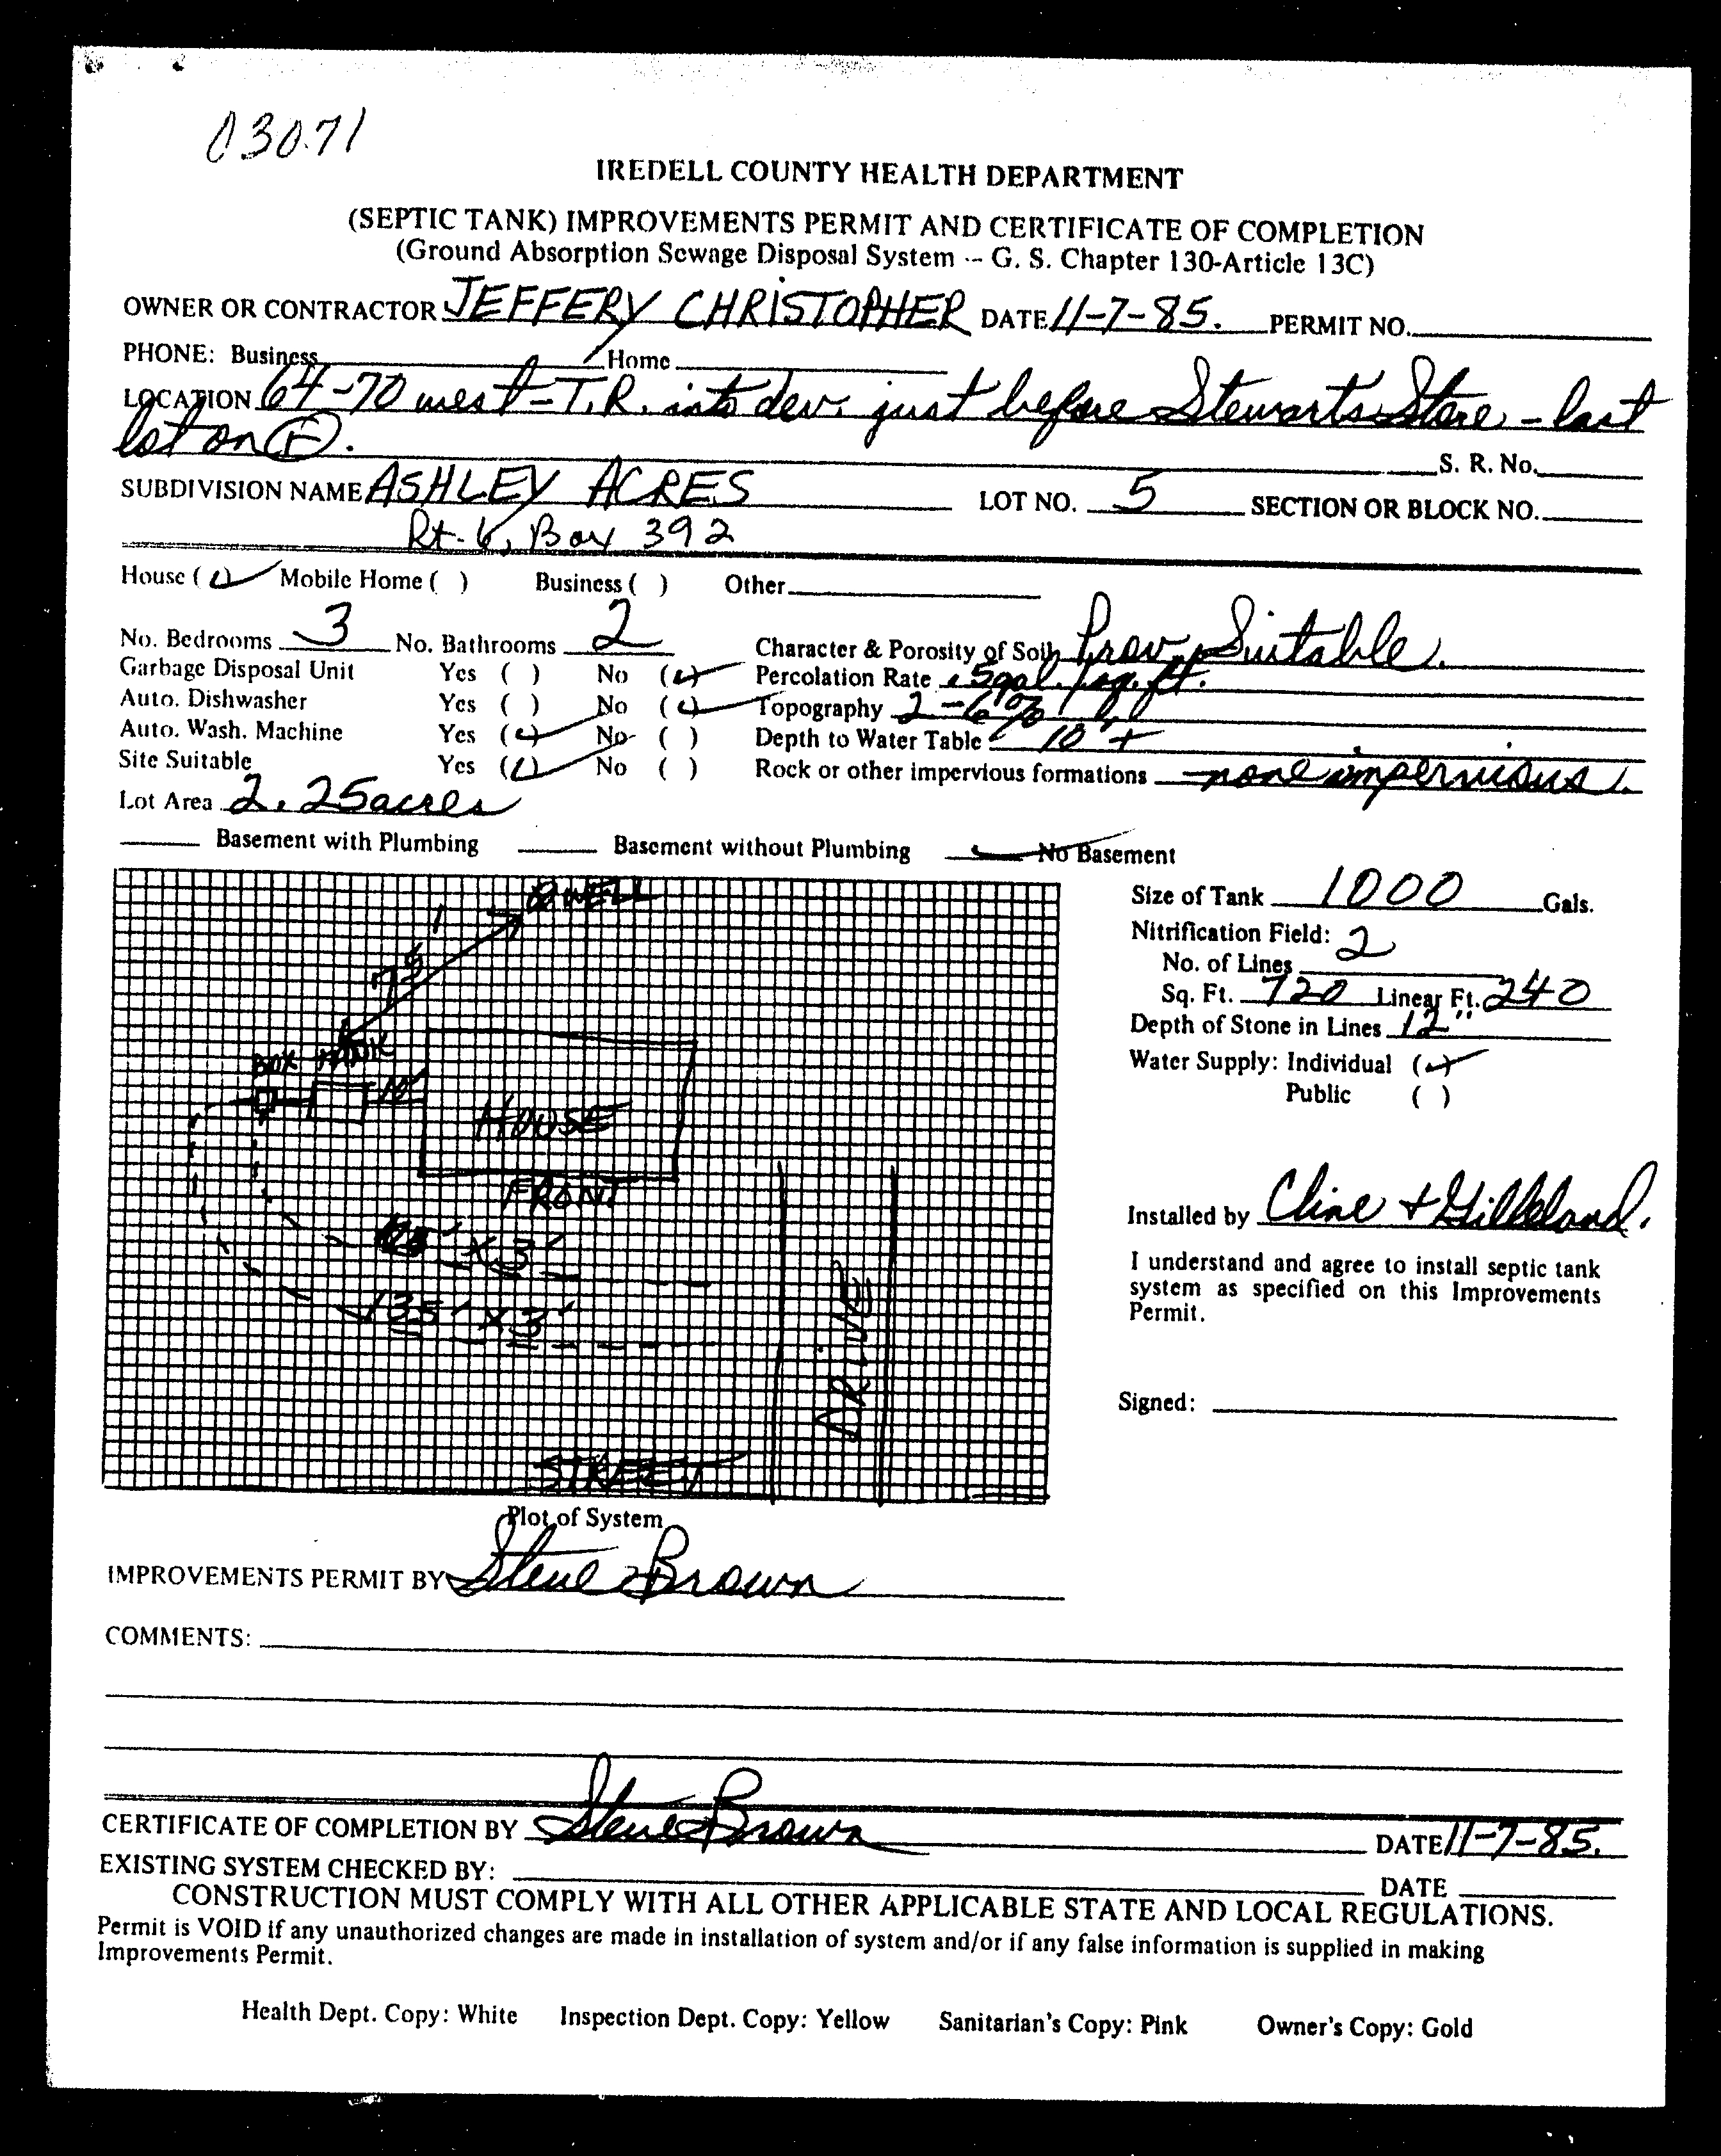 03071
IREDELL COUNTY HEALTH DEPARTMENT
(SEPTIC TANK) IMPROVEMENTS PERMIT AND CERTIFICATE OF COMPLETION
(Ground Absorption Sewage Disposal System -- G. S. Chapter 130-Article 13C)
OWNER OR CONTRACTOR JEFFERY CHRISTOPHER DATE 11-7-85. PERMIT NO.
PHONE: Business Home
LOCATION 64-70 west - T.R. into dev. just before Stewarts Store - last
lot on
S. R. No.
SUBDIVISION NAME ASHLEY ACRES LOT NO. 5 SECTION OR BLOCK NO.
Rt. 6, Box 392
House ( ✓ ) Mobile Home ( ) Business ( ) Other
No. Bedrooms 3 No. Bathrooms 2 Character & Porosity of Soil Prov. Suitable.
Garbage Disposal Unit Yes ( ) No ( ✓ ) Percolation Rate .5 gal./sq. ft.
Auto. Dishwasher Yes ( ) No ( ✓ ) Topography 2-6%
Auto. Wash. Machine Yes ( ✓ ) No ( ) Depth to Water Table 10'+
Site Suitable Yes ( ✓ ) No ( ) Rock or other impervious formations none impervious.
Lot Area 2.25 acres
Basement with Plumbing Basement without Plumbing ✓ No Basement
WELL
75'
BOX TANK
10'
HOUSE
FRONT
105' x 3'
135' x 3'
DRIVE
STREET
Plot of System
Size of Tank 1000 Gals.
Nitrification Field:
No. of Lines 2
Sq. Ft. 720 Linear Ft. 240
Depth of Stone in Lines 12"
Water Supply: Individual ( ✓ )
Public ( )
Installed by Cline + Gilleland.
I understand and agree to install septic tank
system as specified on this Improvements
Permit.
Signed:
IMPROVEMENTS PERMIT BY Steve Brown
COMMENTS:
CERTIFICATE OF COMPLETION BY Steve Brown DATE 11-7-85.
EXISTING SYSTEM CHECKED BY: DATE
CONSTRUCTION MUST COMPLY WITH ALL OTHER APPLICABLE STATE AND LOCAL REGULATIONS.
Permit is VOID if any unauthorized changes are made in installation of system and/or if any false information is supplied in making
Improvements Permit.
Health Dept. Copy: White Inspection Dept. Copy: Yellow Sanitarian's Copy: Pink Owner's Copy: Gold